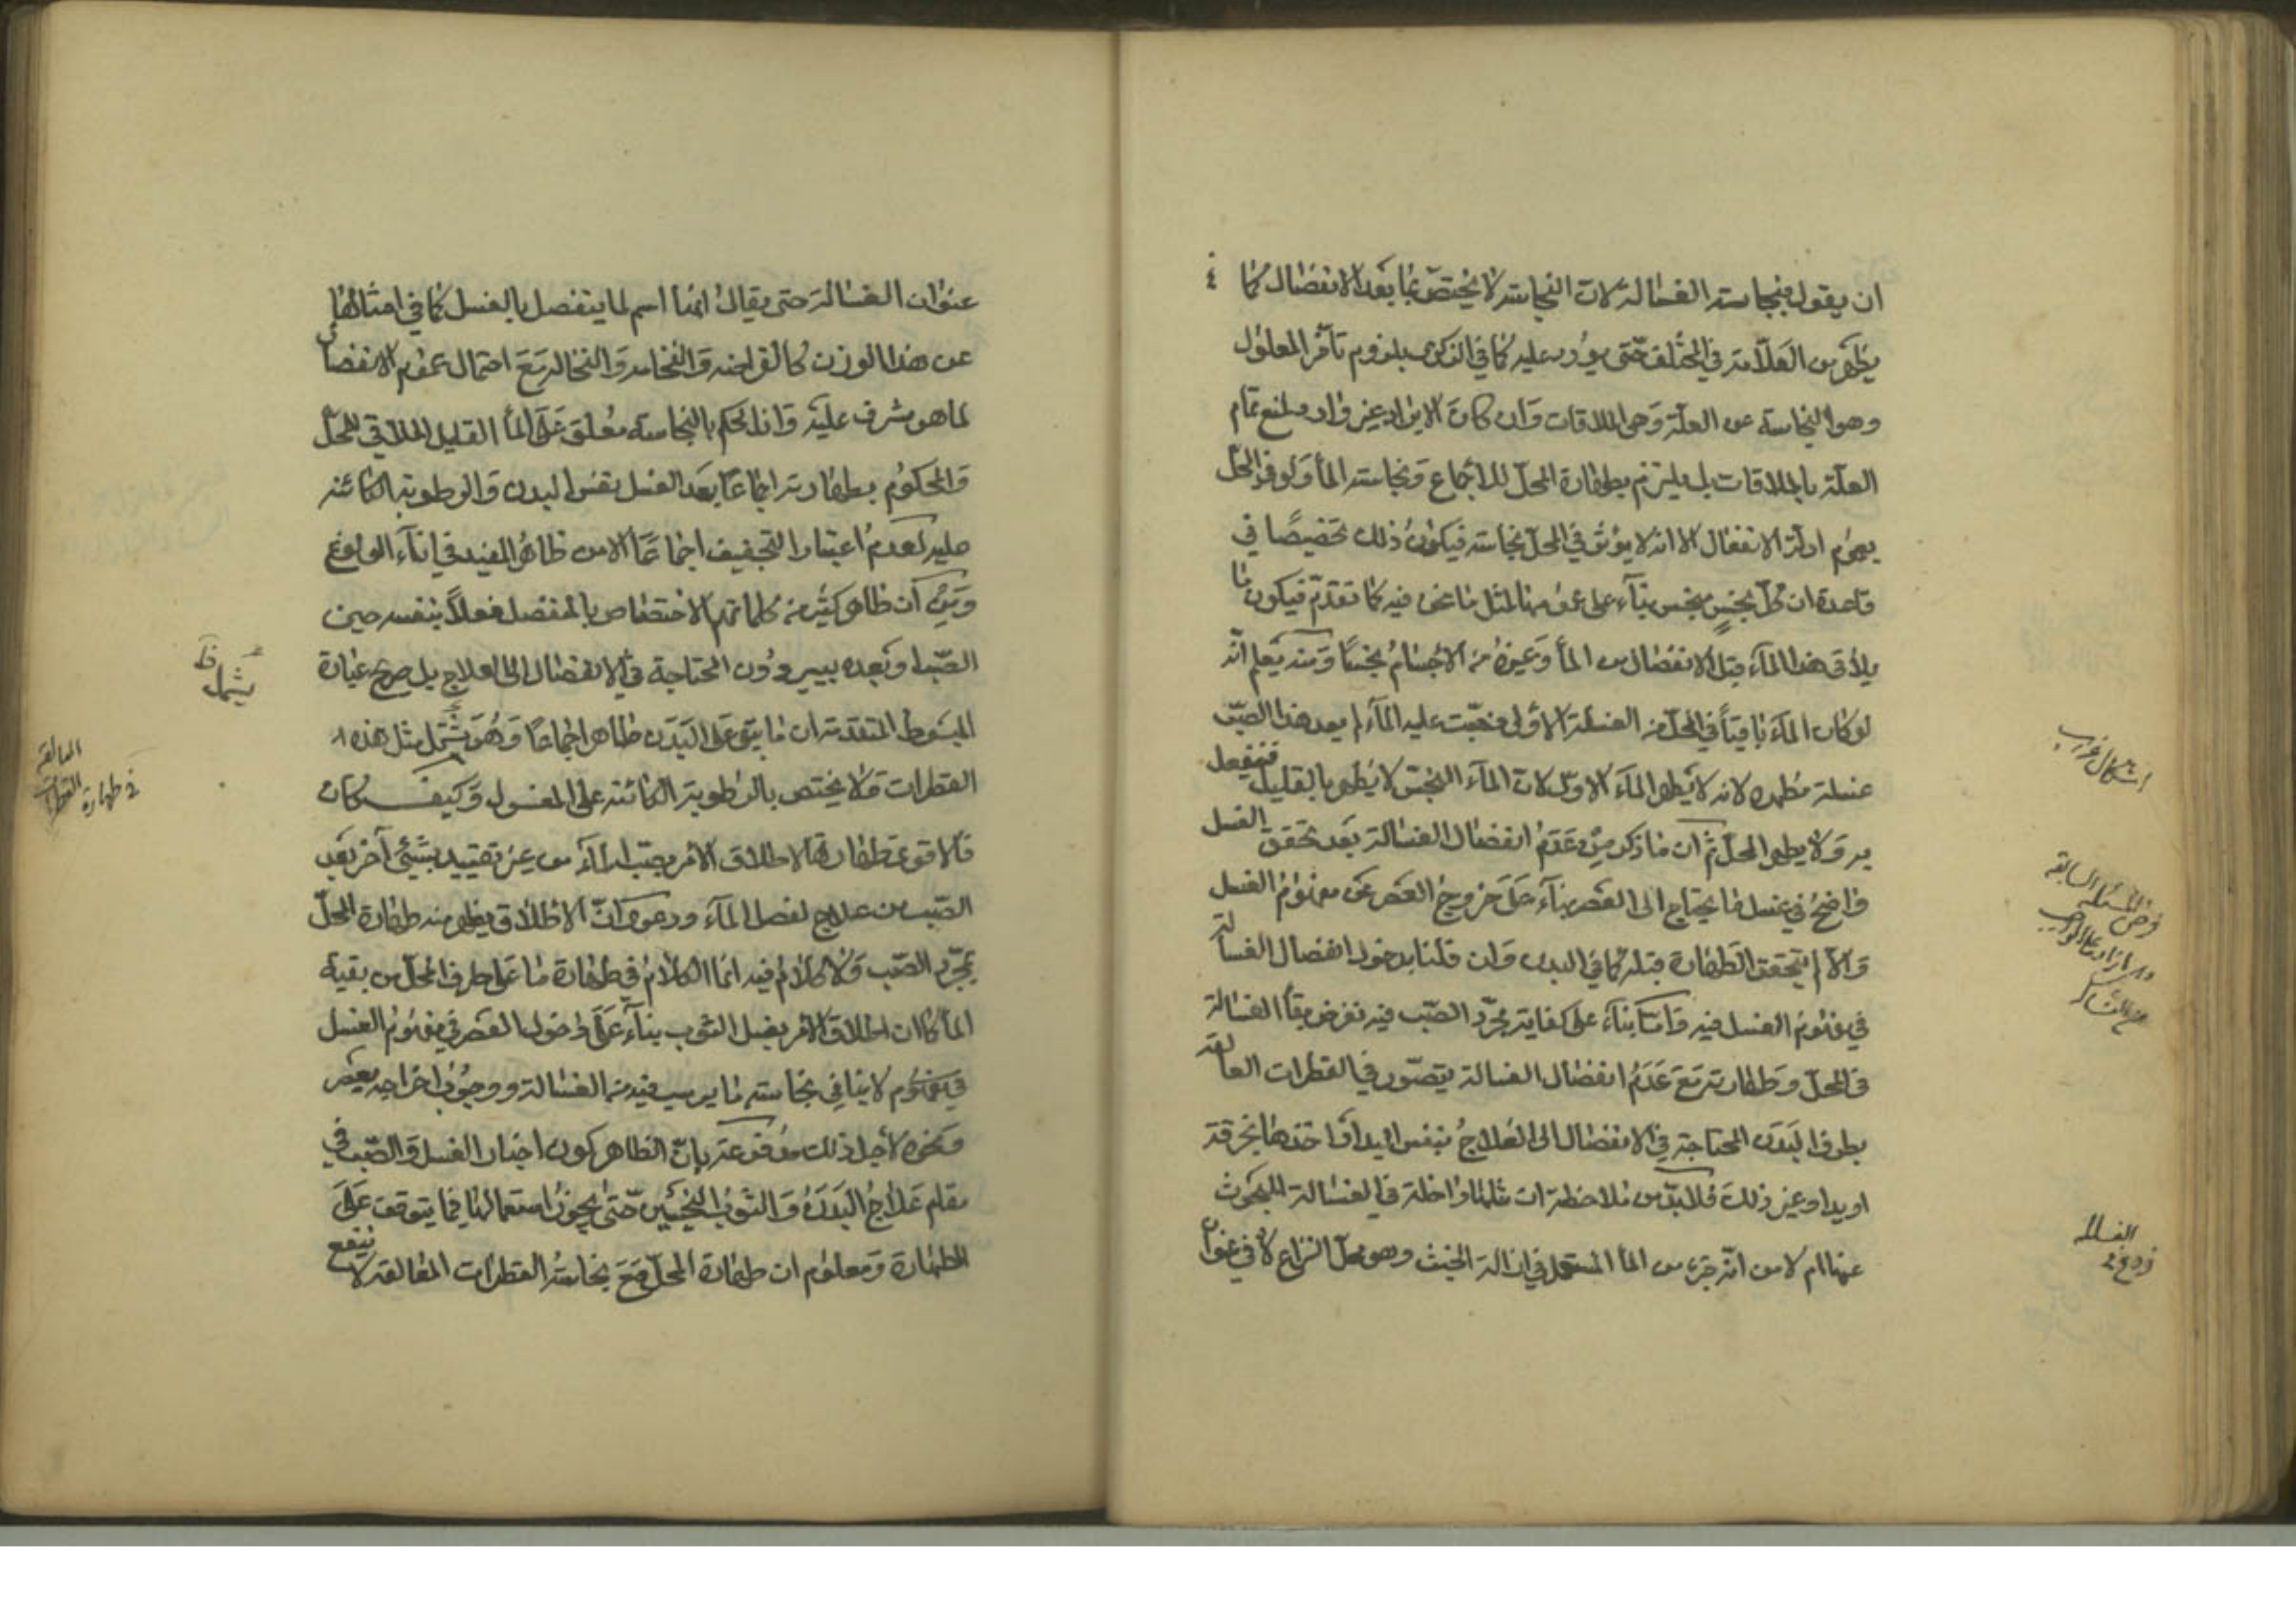 ان يقول بنجاسته الغسالة لان النجاسة لا يختص بما بعد الانفصال كما
يظهر من العلامة في المختلف حتى يورد عليه كما في الذكرى بلزوم تأخر المعلول
وهو النجاسة عن العلة وهى الملاقات وان كان الايراد غير وارد لمنع تمام
العلة بالملاقات بل يلتزم بطهارة المحل للاجماع ونجاسته الماء ولو في المحل
بعموم ادلة الانفعال الا انه لا يؤثر في المحل نجاسة فيكون ذلك تخصيصا في
قاعدة ان كل نجس منجس بناء على عمومها لمثل ما نحن فيه كما تقدم فيكون ما
يلاقى هذا الماء قبل الانفصال من الماء وغيره من الاجسام نجسا ومنه يعلم انه
لو كان الماء باقيا في المحل من الغسلة الاولى فصبت عليه الماء لم يعد هذا الصب
غسلة مطهرة لانه لا يطهر الماء الاول لان الماء النجس لا يطهر بالقليل فينفعل
به ولا يطهر المحل ثم ان ما ذكر من عدم انفصال الغسالة بعد تحقق الغسل
واضح في غسل ما يحتاج الى العصر بناء على خروج العصر عن مفهوم الغسل
والا لم يتحقق الطهارة قبله كما في البدن وان قلنا بدخول انفصال الغسالة
في مفهوم الغسل فيه واما بناء على كفاية مجرد الصب فيه نفرض بقاء الغسالة
في المحل وطهارته مع عدم انفصال الغسالة يتصور في القطرات العالقة
بطرف البدن المحتاجة في الانفصال الى العلاج بنفس اليد او اخذها بخرقة
او يد او غير ذلك فلا بد من ملاحظة ان مثلها داخلة في الغسالة المبحوث
عنها ام لا من انه جزء من الماء المستعمل في ازالة الخبث وهو محل النزاع لا في عنوان
اشكال غريب
فرض المسئلة السابقة
الغسالة
فروع في
عنوان الغسالة حتى يقال انها اسم لما ينفصل بالغسل كما في امثالها
عن هذا الوزن كالقراضة والنخامة والنخالة مع احتمال عموم الانفصال
لما هو مشرف عليه وانا الحكم بالنجاسة معلق على الماء القليل الملاقى للمحل
والمحكوم بطهارته اجماعا بعد الغسل نفس البدن والرطوبة الكائنة
عليه لعدم اعتبار التجفيف اجماعا الا من ظاهر المفيد في اناء الولوغ
وبين ان ظاهر كثير من كلماتهم الاختصاص بالمنفصل فعلا بنفسه حين
الصب او بعده بيسير دون المحتاجة في الانفصال الى العلاج بل صريح عبارة
المبسوط المتقدمة ان ما يبقى على البدن طاهر اجماعا وهو يشمل مثل هذه
القطرات ولا يختص بالرطوبة الكائنة على المغسول وكيف كان
فالاقوى طهارتها لاطلاق الامر بصب الماء من غير تقييد بشئ آخر بعد
الصب من علاج لفصل الماء ودعوى ان الاطلاق يظهر منه طهارة المحل
بمجرد الصب ولا كلام فيه انما الكلام في طهارة ما على طرف المحل من بقية
الماء كما ان اطلاق الامر بغسل الثوب بناء على دخول العصر في مفهوم الغسل
في مفهوم لا ينافي نجاسة ما يرسب فيه من الغسالة ووجوب اخراجه بعصر
ونحوه لاجل ذلك مدفوعة بان الظاهر كون اخبار الغسل والصب في
مقام علاج البدن والثوب النجسين حتى يجوز استعمالها فيما يتوقف على
الطهارة ومعلوم ان طهارة المحل مع نجاسة القطرات العالقة لا ينفع
يشمل ظ
العالقة
القطرات
في طهارة